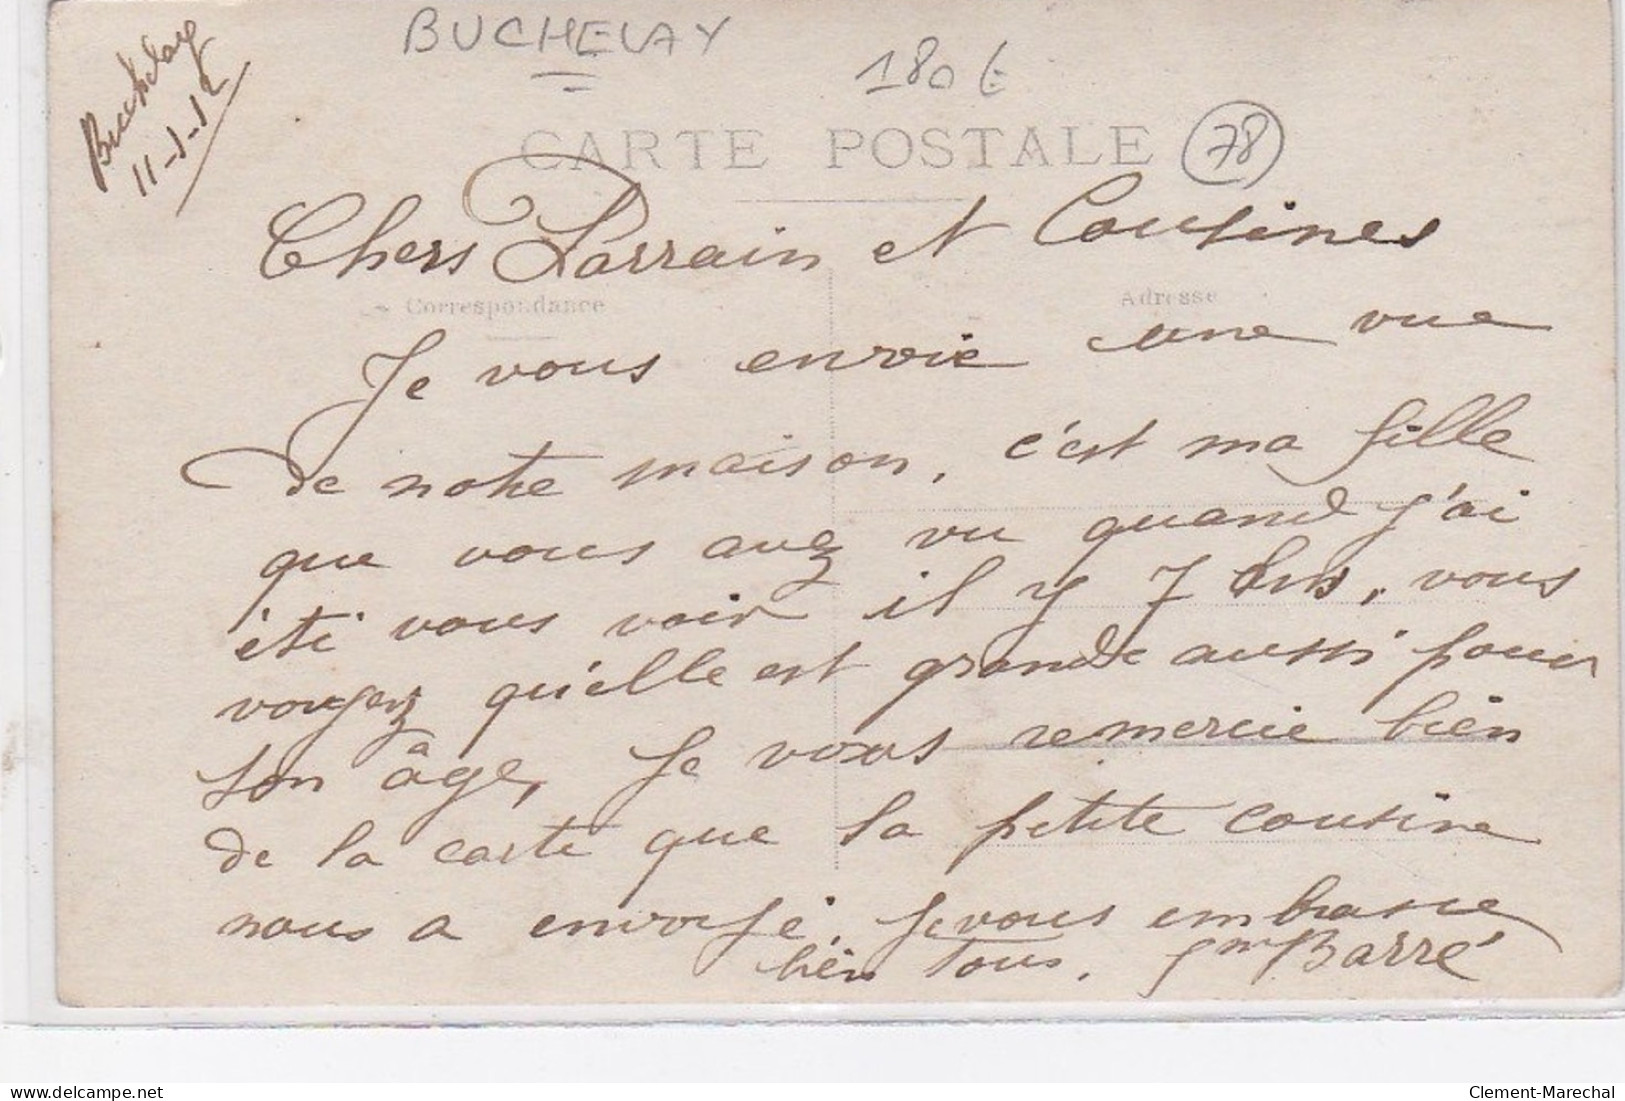 BUCHELAY
180 €
Buchelay
11-1-12
CARTE POSTALE
78
Chers Parrain et Cousines
Correspondance
Adresse
Je vous envoie une vue
de notre maison, c'est ma fille
que vous avez vu quand j'ai
été vous voir il y 7 ans, vous
voyez qu'elle est grande aussi pour
son âge, Je vous remercie bien
de la carte que la petite cousine
nous a envoyé. Je vous embrasse
bien Tous. Barré
delcampe.net
Clement-Marechal